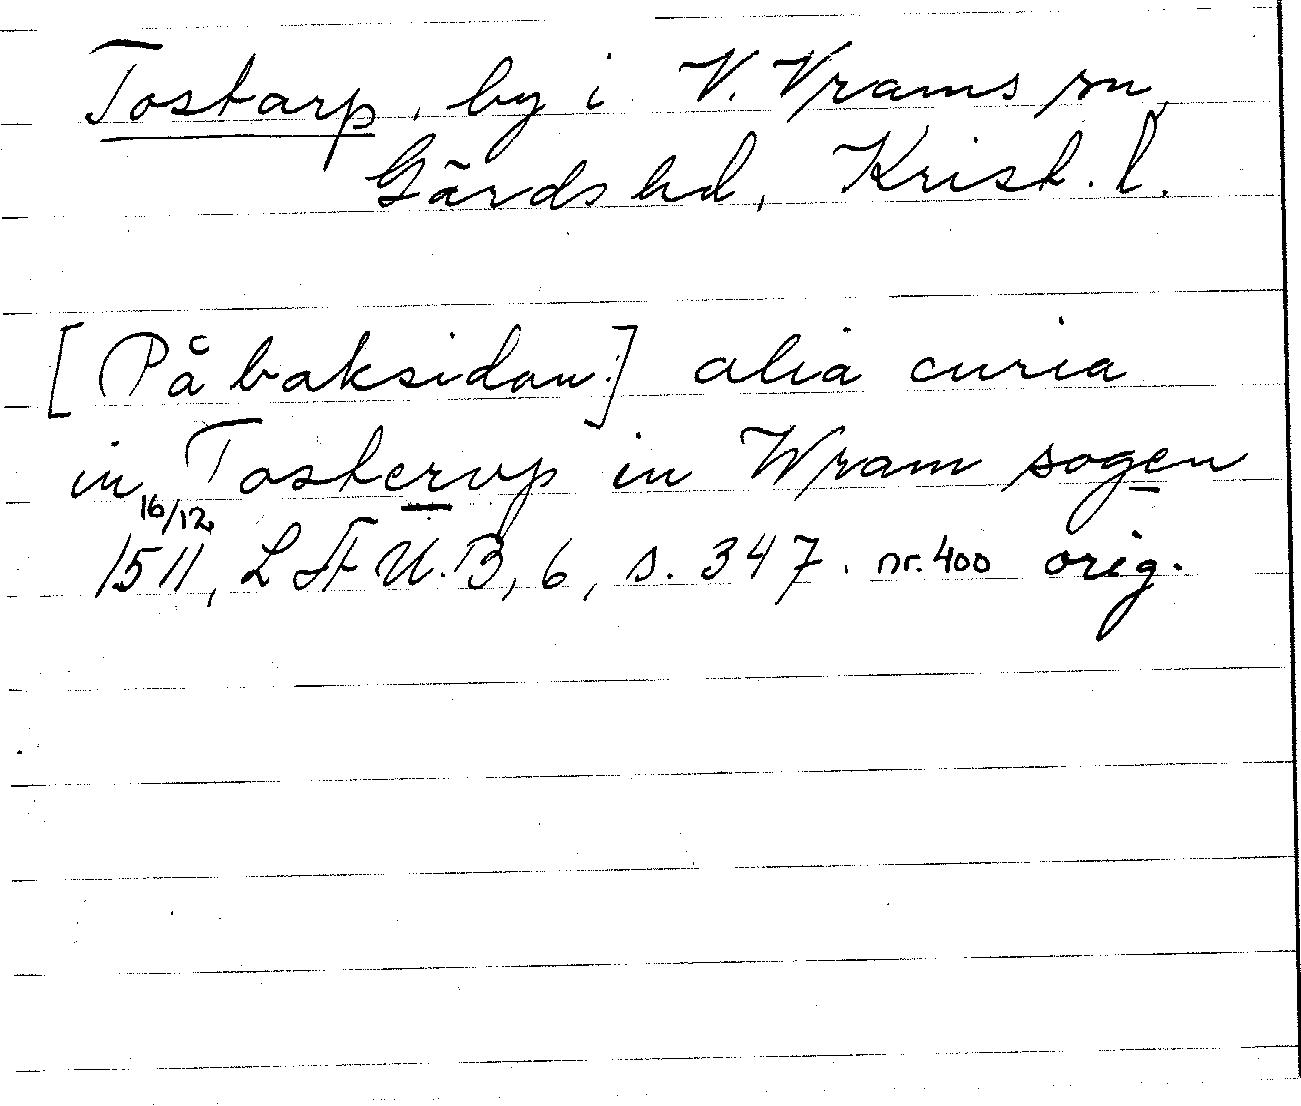 Tostarp, by i V. Vrams sn,
Gärds hd, Krist. l.
[På baksidan:] alia curia
in Tosterup in Wram sogen
16/12
1511, LÄU.B, 6, s. 347. nr. 400 orig.